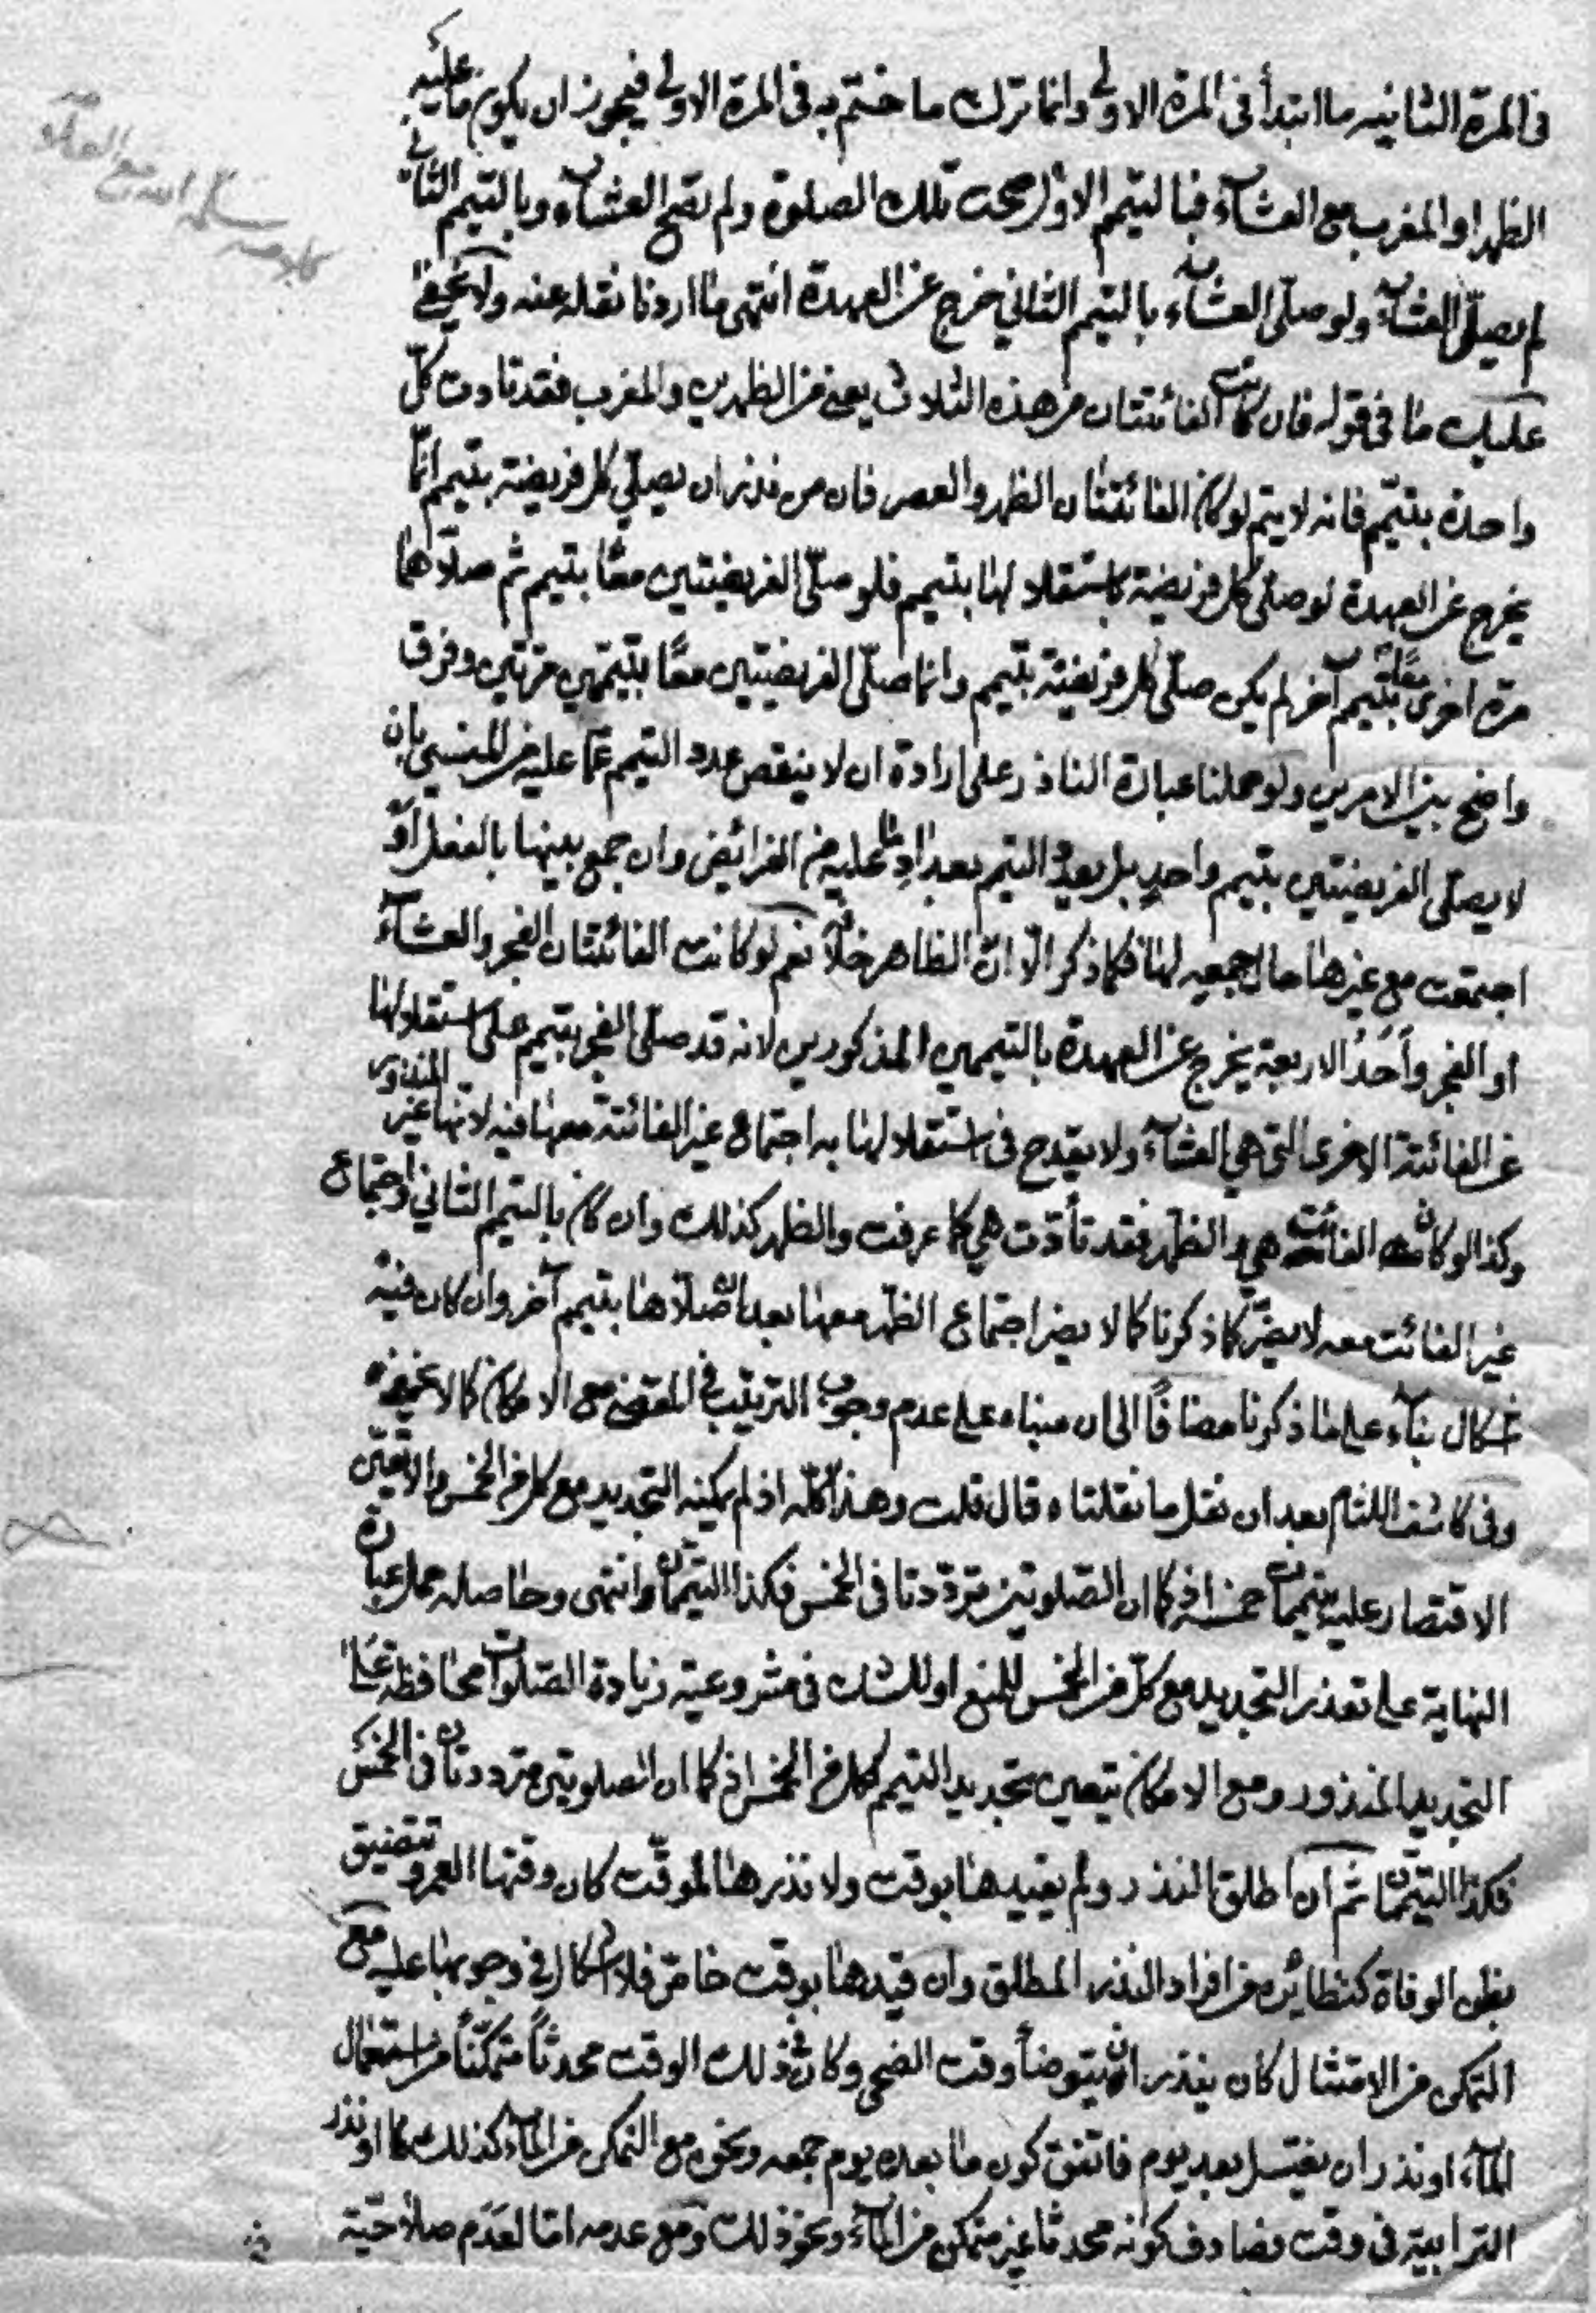 في المرة الثانيه ما ابتدأ في المرة الاولى وانما ترك ما ختم به في المرة الاولى فيجوز ان يكون ما عليه
الظهر او المغرب مع العشآء فبالتيمم الاول صحت تلك الصلوة ولم تصح العشآء وبالتيمم الثاني
لم يصلّ العشآء ولو صلّى العشآء بالتيمم الثاني خرج عن العهدة انتهى ما اردنا نقله عنه ولا يخفى
عليك ما في قوله فان كانت الفائتتان من هذه الثلاث يعني من الظهرين والمغرب فقد تادت كلّ
واحدة بتيمّم فانه لا يتم لو كان الفائتتان الظهر والعصر فان من نذر ان يصلّي كل فريضة بتيمم انّما
يخرج عن العهدة لو صلى كل فريضة باستقلالها بتيمم فلو صلّى الفريضتين معًا بتيمم ثم صلّاهما
مرة اخرى معًا بتيمم آخر لم يكن صلّى كل فريضة بتيمم وانما صلّى الفريضتين معًا بتيممين مرتين وفرق
واضح بين الامرين ولو حملنا عبارة الناذر على ارادة ان لا ينقص عدد التيمم عمّا عليه من المنسي بان
لا يصلى الفريضتين بتيمم واحدٍ بل يعدد التيمم بعدد ما عليه من الفرائض وان جمع بينها بالفعل او
اجتمعت مع غيرها حال جمعه لها فكما ذكر الّا انّ الظاهر خلافه نعم لو كانت الفائتتان الفجر والعشآء
او الفجر وأحَدُ الاربعة يخرج عن العهدة بالتيممين المذكورين لانه قد صلّى الفجر بتيمم على استقلالها
عن الفائتة الاخرى التي هي العشآء ولا يقدح في استقلالها به اجتماع غير الفائتة معها فيه لانها غير المنذور
وكذا لو كان الفائت هي والظهر فقد تأدّت هي كما عرفت والظهر كذلك وان كان بالتيمم الثاني واجتماع
غير الفائت معه لا يضرّ كما ذكرنا كما لا يضر اجتماع الظهر معها بعد ان صلّاها بتيمم آخر وان كان فيه
اشكال بنآء على ما ذكرنا مضافًا الى ان مبناه على عدم وجوب الترتيب في المقضي مع الامكان كما لا يخفى
وفي كاشف اللثام بعد ان نقل ما نقلناه قال قلت وهذا كلّه اذ لم يمكنه التجديد مع كل من الخمس والا تعيّن
الاقتصار عليه تيممات خمسة اذ كما ان الصّلوتين تردّدتا في الخمس فكذا التيممان انتهى وحاصله حمل عبارة
النهاية على تعذر التجديد مع كلّ من الخمس للمنع او للشك في مشروعية زيادة الصّلوات محافظة على
التجديد المنذور ومع الامكان يتعين تجديد التيمم لكل من الخمس اذ كما ان الصلوتين مترددتان في الخمس
فكذا التيممان ثم ان اطلق النذر ولم يقيدها بوقت ولا نذرها لموقّت كان وقتها العمر وتتضيق
بظن الوفاة كنظائره من افراد النذر المطلق وان قيدها بوقت خاصّ فلا اشكال في وجوبها عليه مع
التمكن من الامتثال كان ينذر ان يتوضأ وقت الضحى وكان في ذلك الوقت محدثاً متمكّناً من استعمال
المآء او نذر ان يغتسل بعد يوم فاتفق كون ما بعده يوم جمعه ونحوه مع التمكن من المآء كذلك كما او نذر
الترابية في وقت فصادف كونه محدثا غير متمكن من المآء ونحو ذلك ومع عدمه امّا لعدم صلاحيّة